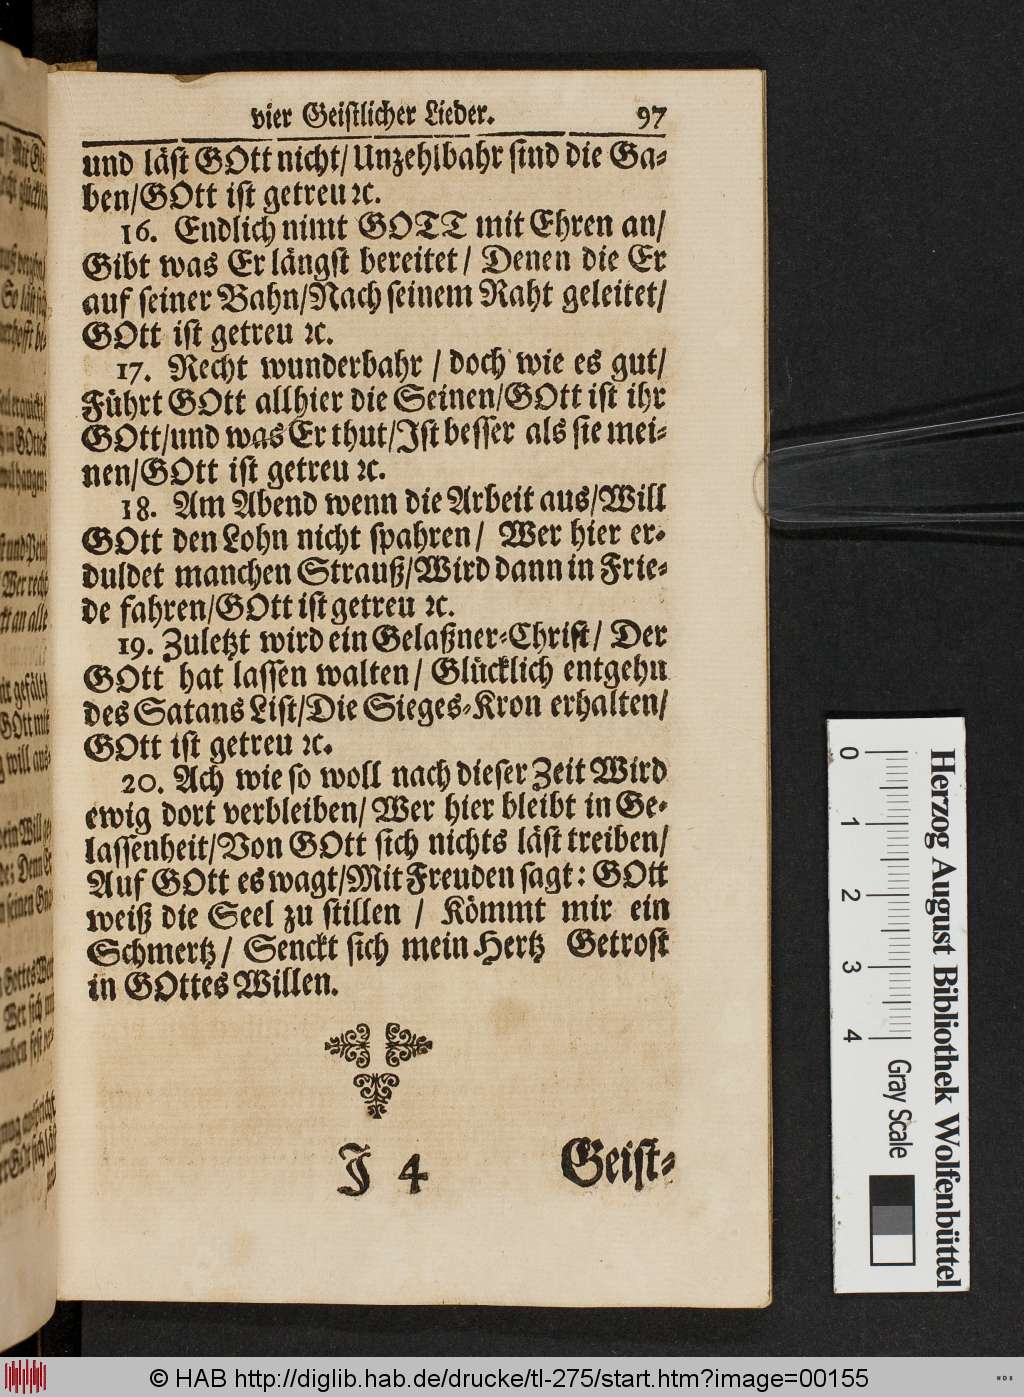 vier Geistlicher Lieder. 97
und läst GOtt nicht/ Unzehlbahr sind die Ga-
ben/ GOtt ist getreu ꝛc.
16. Endlich nimt GOTT mit Ehren an/
Gibt was Er längst bereitet/ Denen die Er
auf seiner Bahn/ Nach seinem Raht geleitet/
GOtt ist getreu ꝛc.
17. Recht wunderbahr / doch wie es gut/
Führt GOtt allhier die Seinen/ GOtt ist ihr
GOtt/ und was Er thut/ Ist besser als sie mei-
nen/ GOtt ist getreu ꝛc.
18. Am Abend wenn die Arbeit aus/ Will
GOtt den Lohn nicht spahren/ Wer hier er-
duldet manchen Strauß/ Wird dann in Frie-
de fahren/ GOtt ist getreu ꝛc.
19. Zuletzt wird ein Gelaßner-Christ/ Der
GOtt hat lassen walten/ Glücklich entgehn
des Satans List/ Die Sieges-Kron erhalten/
GOtt ist getreu ꝛc.
20. Ach wie so woll nach dieser Zeit Wird
ewig dort verbleiben/ Wer hier bleibt in Ge-
lassenheit/ Von GOtt sich nichts läst treiben/
Auf GOtt es wagt/ Mit Freuden sagt: GOtt
weiß die Seel zu stillen / Kömmt mir ein
Schmertz/ Senckt sich mein Hertz Getrost
in GOttes Willen.
J 4 Geist-
0 1 2 3 4 Gray Scale
Herzog August Bibliothek Wolfenbüttel
© HAB http://diglib.hab.de/drucke/tl-275/start.htm?image=00155